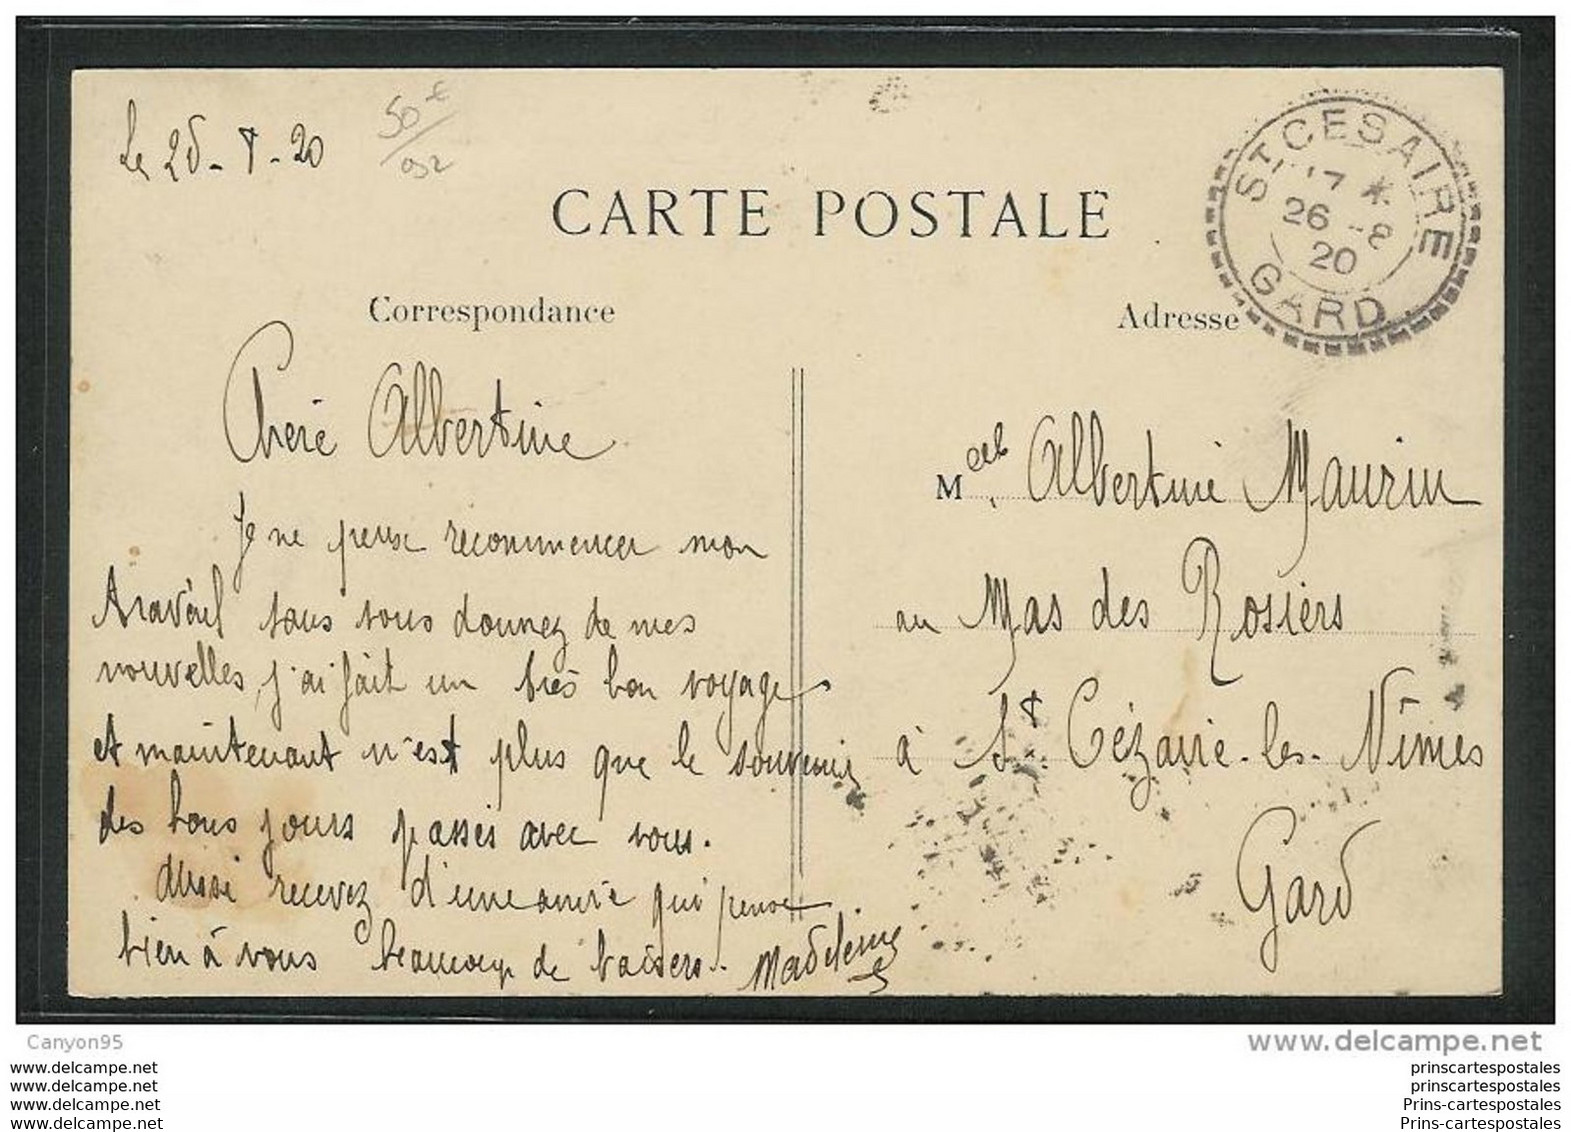 Le 25-8-20
50 €
92
CARTE POSTALE
ST CESAIRE
17 *
26 -8
20
GARD
Correspondance
Adresse
Chère Albertine
Je ne peux recommencer mon
travail sans vous donnez de mes
nouvelles, j'ai fait un très bon voyage
et maintenant n'est plus que le souvenir
des bons jours passés avec vous.
Aussi recevez d'une amie qui pense
bien à vous beaucoup de baisers. Madeleine
Melle Albertine Maurin
au Mas des Rosiers
à St. Cézaire-les-Nîmes
Gard
Canyon95
www.delcampe.net
www.delcampe.net
www.delcampe.net
www.delcampe.net
www.delcampe.net
prinscartespostales
prinscartespostales
Prins-cartespostales
Prins-cartespostales